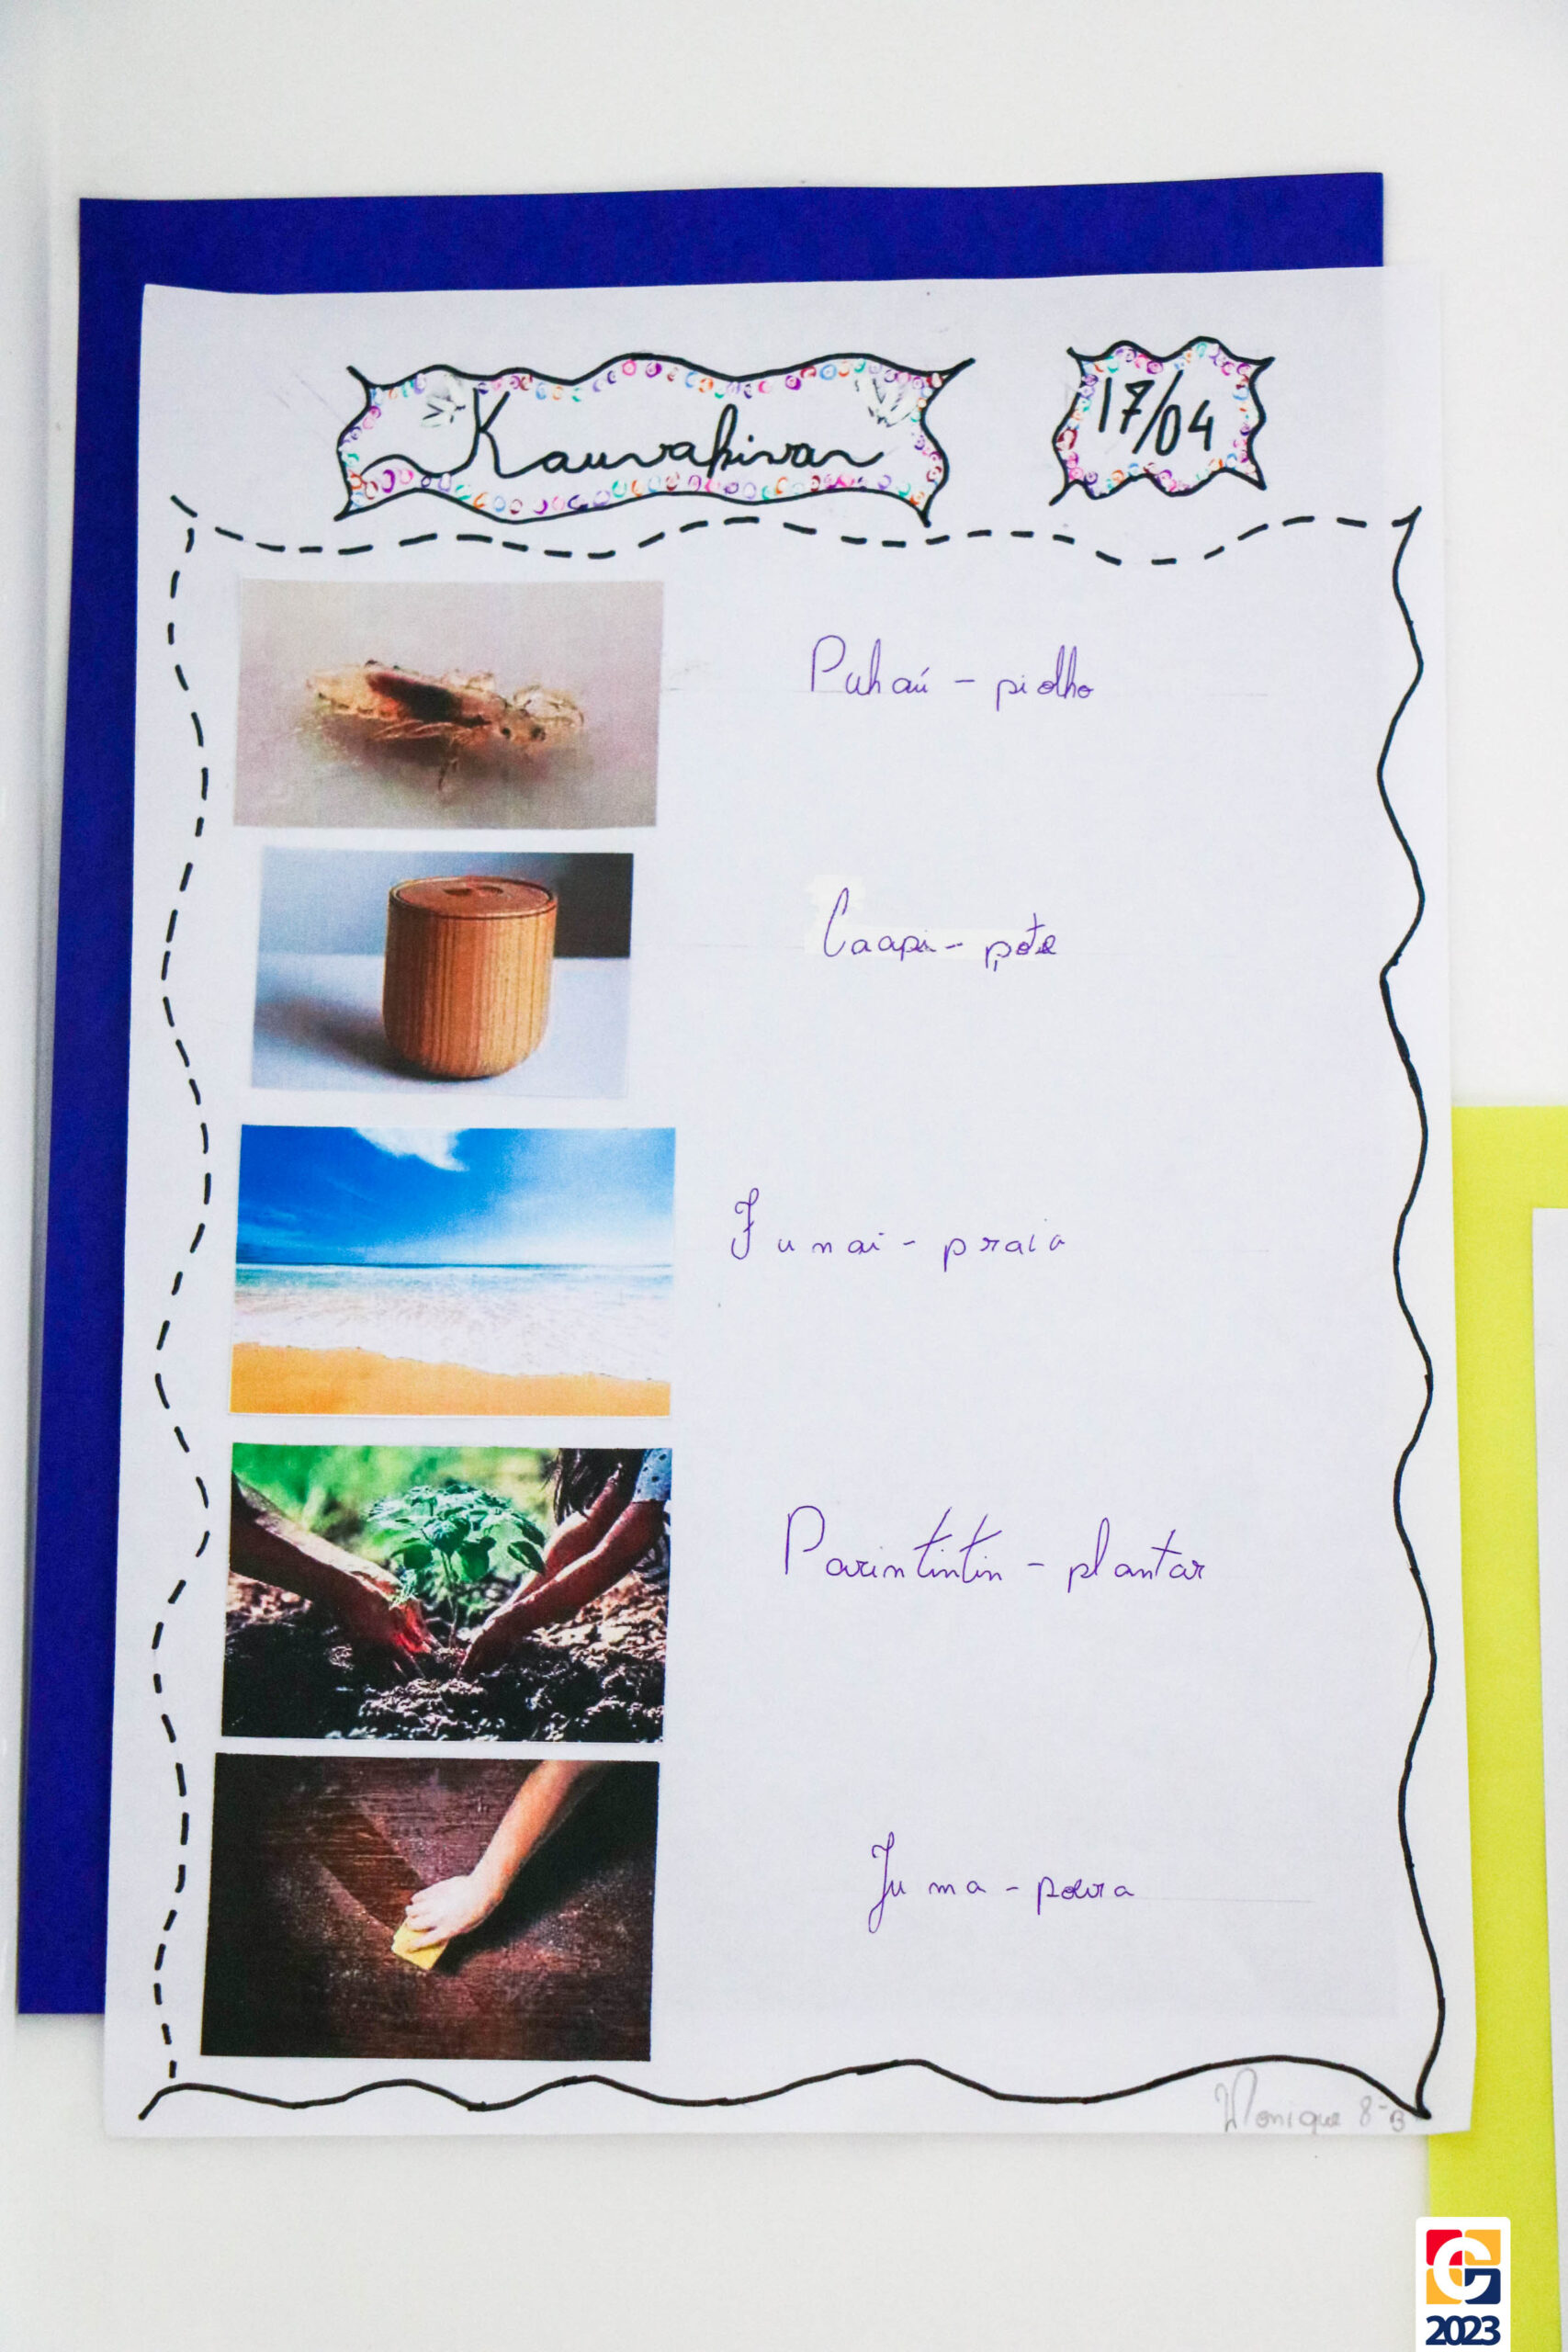 Kawahivar
17/04
Puhaú - piolho
Caapi - pote
Junai - praia
Parintintin - plantar
Juma - poeira
Monique 8-B
2023